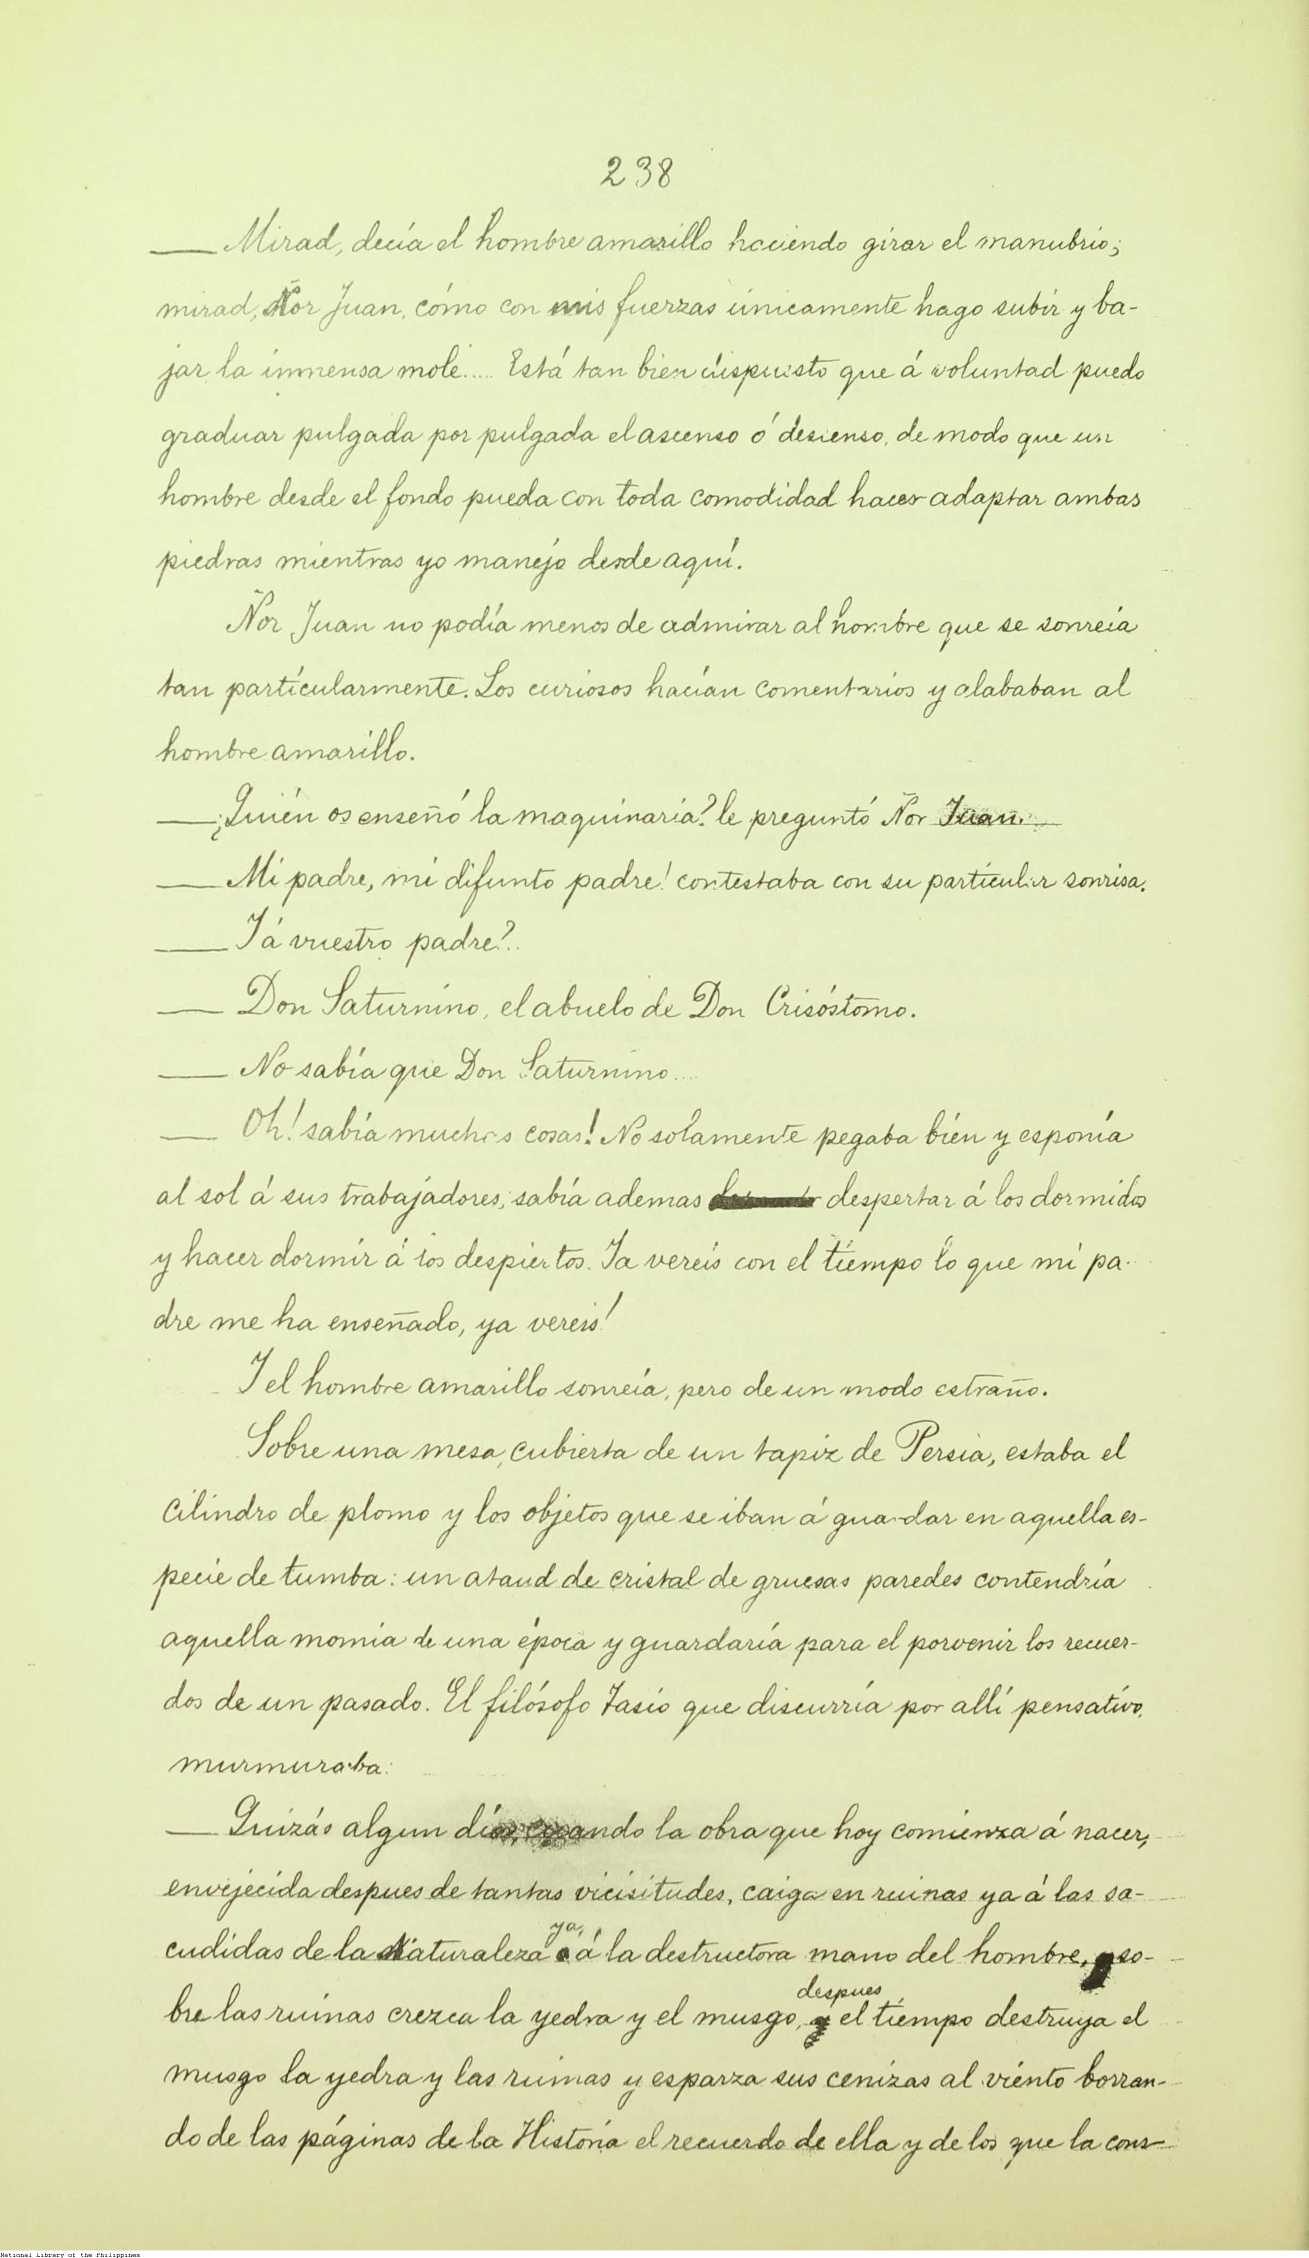 238
— Mirad, decía el hombre amarillo haciendo girar el manubrio;
mirad, Ñor Juan, cómo con mis fuerzas únicamente hago subir y ba-
jar la inmensa mole..... Está tan bien dispuesto que á voluntad puedo
graduar pulgada por pulgada el ascenso ó descenso, de modo que un
hombre desde el fondo pueda con toda comodidad hacer adaptar ambas
piedras mientras yo manejo desde aquí.
Ñor Juan no podía menos de admirar al hombre que se sonreía
tan particularmente. Los curiosos hacían comentarios y alababan al
hombre amarillo.
— ¿Quién os enseñó la maquinaria? le preguntó Ñor Juan.
— Mi padre, mi difunto padre! contestaba con su particular sonrisa.
— Y á vuestro padre?..
— Don Saturnino, el abuelo de Don Crisóstomo.
— No sabía que Don Saturnino....
— Oh! sabía muchas cosas! No solamente pegaba bien y esponía
al sol á sus trabajadores; sabía ademas despertar á los dormidos
y hacer dormir á los despiertos. Ya vereis con el tiempo lo que mi pa-
dre me ha enseñado, ya vereis!
Y el hombre amarillo sonreía, pero de un modo estraño.
Sobre una mesa, cubierta de un tapiz de Persia, estaba el
cilindro de plomo y los objetos que se iban á guardar en aquella es-
pecie de tumba: un ataud de cristal de gruesas paredes contendría
aquella momia de una época y guardaría para el porvenir los recuer-
dos de un pasado. El filósofo Tasio que discurría por allí pensativo,
murmuraba:
— Quizás algun día, cuando la obra que hoy comienza á nacer,
envejecida despues de tantas vicisitudes, caiga en ruinas ya á las sa-
cudidas de la Naturaleza ya á la destructora mano del hombre, y so-
bre las ruinas crezca la yedra y el musgo, despues el tiempo destruya el
musgo la yedra y las ruinas y esparza sus cenizas al viento borran-
do de las páginas de la Historia el recuerdo de ella y de los que la cons-
National Library of the Philippines